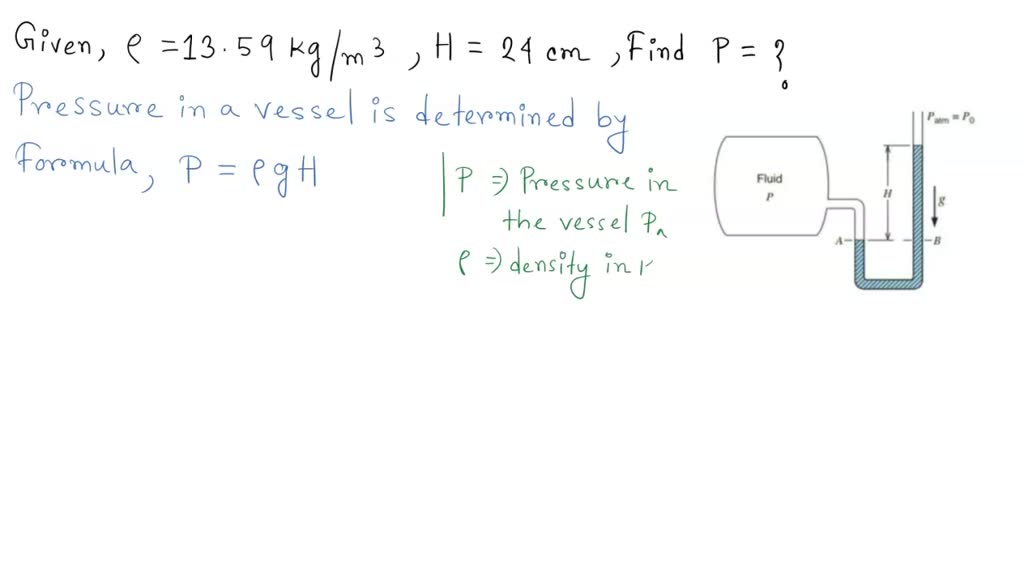 Given, ρ = 13.59 kg/m3, H = 24 cm, Find P = ?
Pressure in a vessel is determined by
Formula, P = ρgH
P ⇒ Pressure in
the vessel Pa
ρ ⇒ density in
Patm = P0
Fluid
P
H
g
A
B